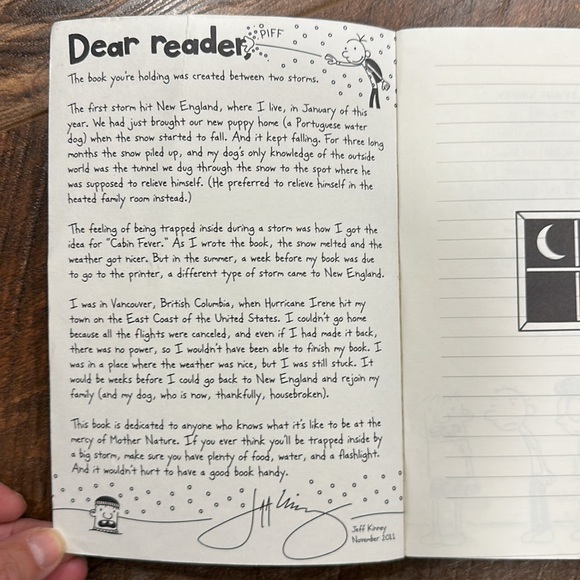 Dear reader,
PIFF
The book you're holding was created between two storms.
The first storm hit New England, where I live, in January of this
year. We had just brought our new puppy home (a Portuguese water
dog) when the snow started to fall. And it kept falling. For three long
months the snow piled up, and my dog's only knowledge of the outside
world was the tunnel we dug through the snow to the spot where he
was supposed to relieve himself. (He preferred to relieve himself in the
heated family room instead.)
The feeling of being trapped inside during a storm was how I got the
idea for "Cabin Fever." As I wrote the book, the snow melted and the
weather got nicer. But in the summer, a week before my book was due
to go to the printer, a different type of storm came to New England.
I was in Vancouver, British Columbia, when Hurricane Irene hit my
town on the East Coast of the United States. I couldn't go home
because all the flights were canceled, and even if I had made it back,
there was no power, so I wouldn't have been able to finish my book. I
was in a place where the weather was nice, but I was still stuck. It
would be weeks before I could go back to New England and rejoin my
family (and my dog, who is now, thankfully, housebroken).
This book is dedicated to anyone who knows what it's like to be at the
mercy of Mother Nature. If you ever think you'll be trapped inside by
a big storm, make sure you have plenty of food, water, and a flashlight.
And it wouldn't hurt to have a good book handy.
Jeff Kinney
Jeff Kinney
November 2011